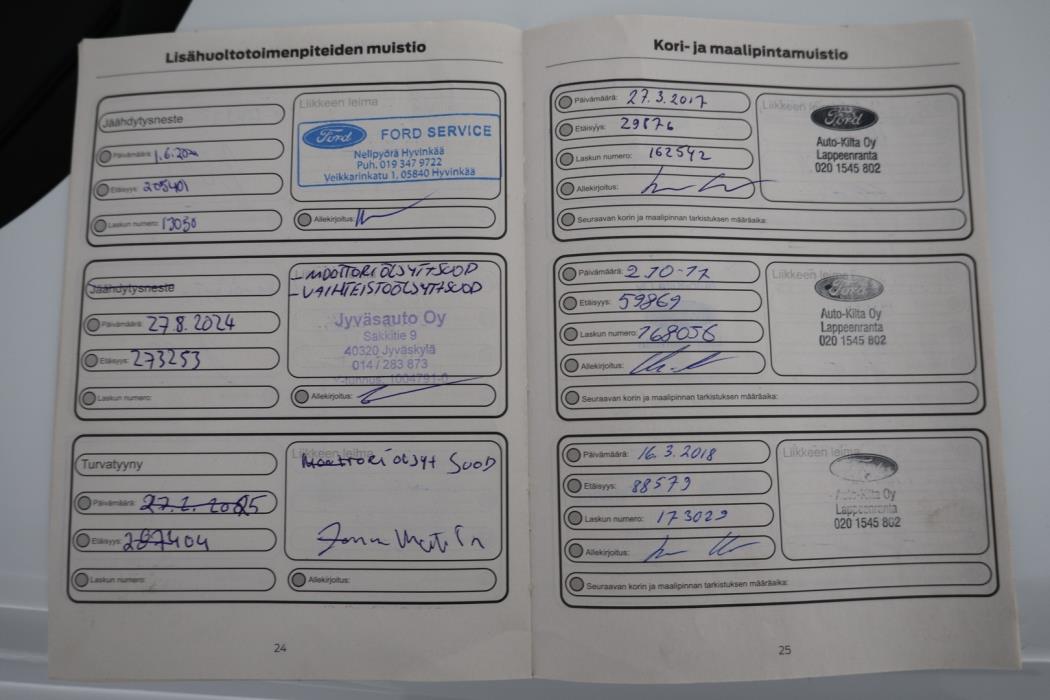 Lisähuoltotoimenpiteiden muistio
Jäähdytysneste
Päivämäärä: 1.6.20
Etäisyys: 205401
Laskun numero: 13030
Liikkeen leima
Ford FORD SERVICE
Nelipyörä Hyvinkää
Puh. 019 347 9722
Veikkarinkatu 1, 05840 Hyvinkää
Allekirjoitus:
Jäähdytysneste
Päivämäärä: 27.8.2024
Etäisyys: 273253
Laskun numero:
- MOOTTORIÖLJYT+SUOD
- VAIHTEISTOÖLJYT+SUOD
Jyväsauto Oy
Sakkitie 9
40320 Jyväskylä
014 / 283 873
Y-tunnus: 1004791-0
Allekirjoitus:
Turvatyyny
Päivämäärä: 27.2.2025
Etäisyys: 287404
Laskun numero:
Liikkeen leima
Moottoriöljyt Suod
Allekirjoitus:
24
Kori- ja maalipintamuistio
Päivämäärä: 27.3.2017
Etäisyys: 29876
Laskun numero: 162542
Allekirjoitus:
Liikkeen leima
Ford
Auto-Kilta Oy
Lappeenranta
020 1545 802
Seuraavan korin ja maalipinnan tarkistuksen määräaika:
Päivämäärä: 2 10-17
Etäisyys: 59869
Laskun numero: 168056
Allekirjoitus:
Liikkeen leima
Ford
Auto-Kilta Oy
Lappeenranta
020 1545 802
Seuraavan korin ja maalipinnan tarkistuksen määräaika:
Päivämäärä: 16.3.2018
Etäisyys: 88579
Laskun numero: 173029
Allekirjoitus:
Liikkeen leima
Auto-Kilta Oy
Lappeenranta
020 1545 802
Seuraavan korin ja maalipinnan tarkistuksen määräaika:
25